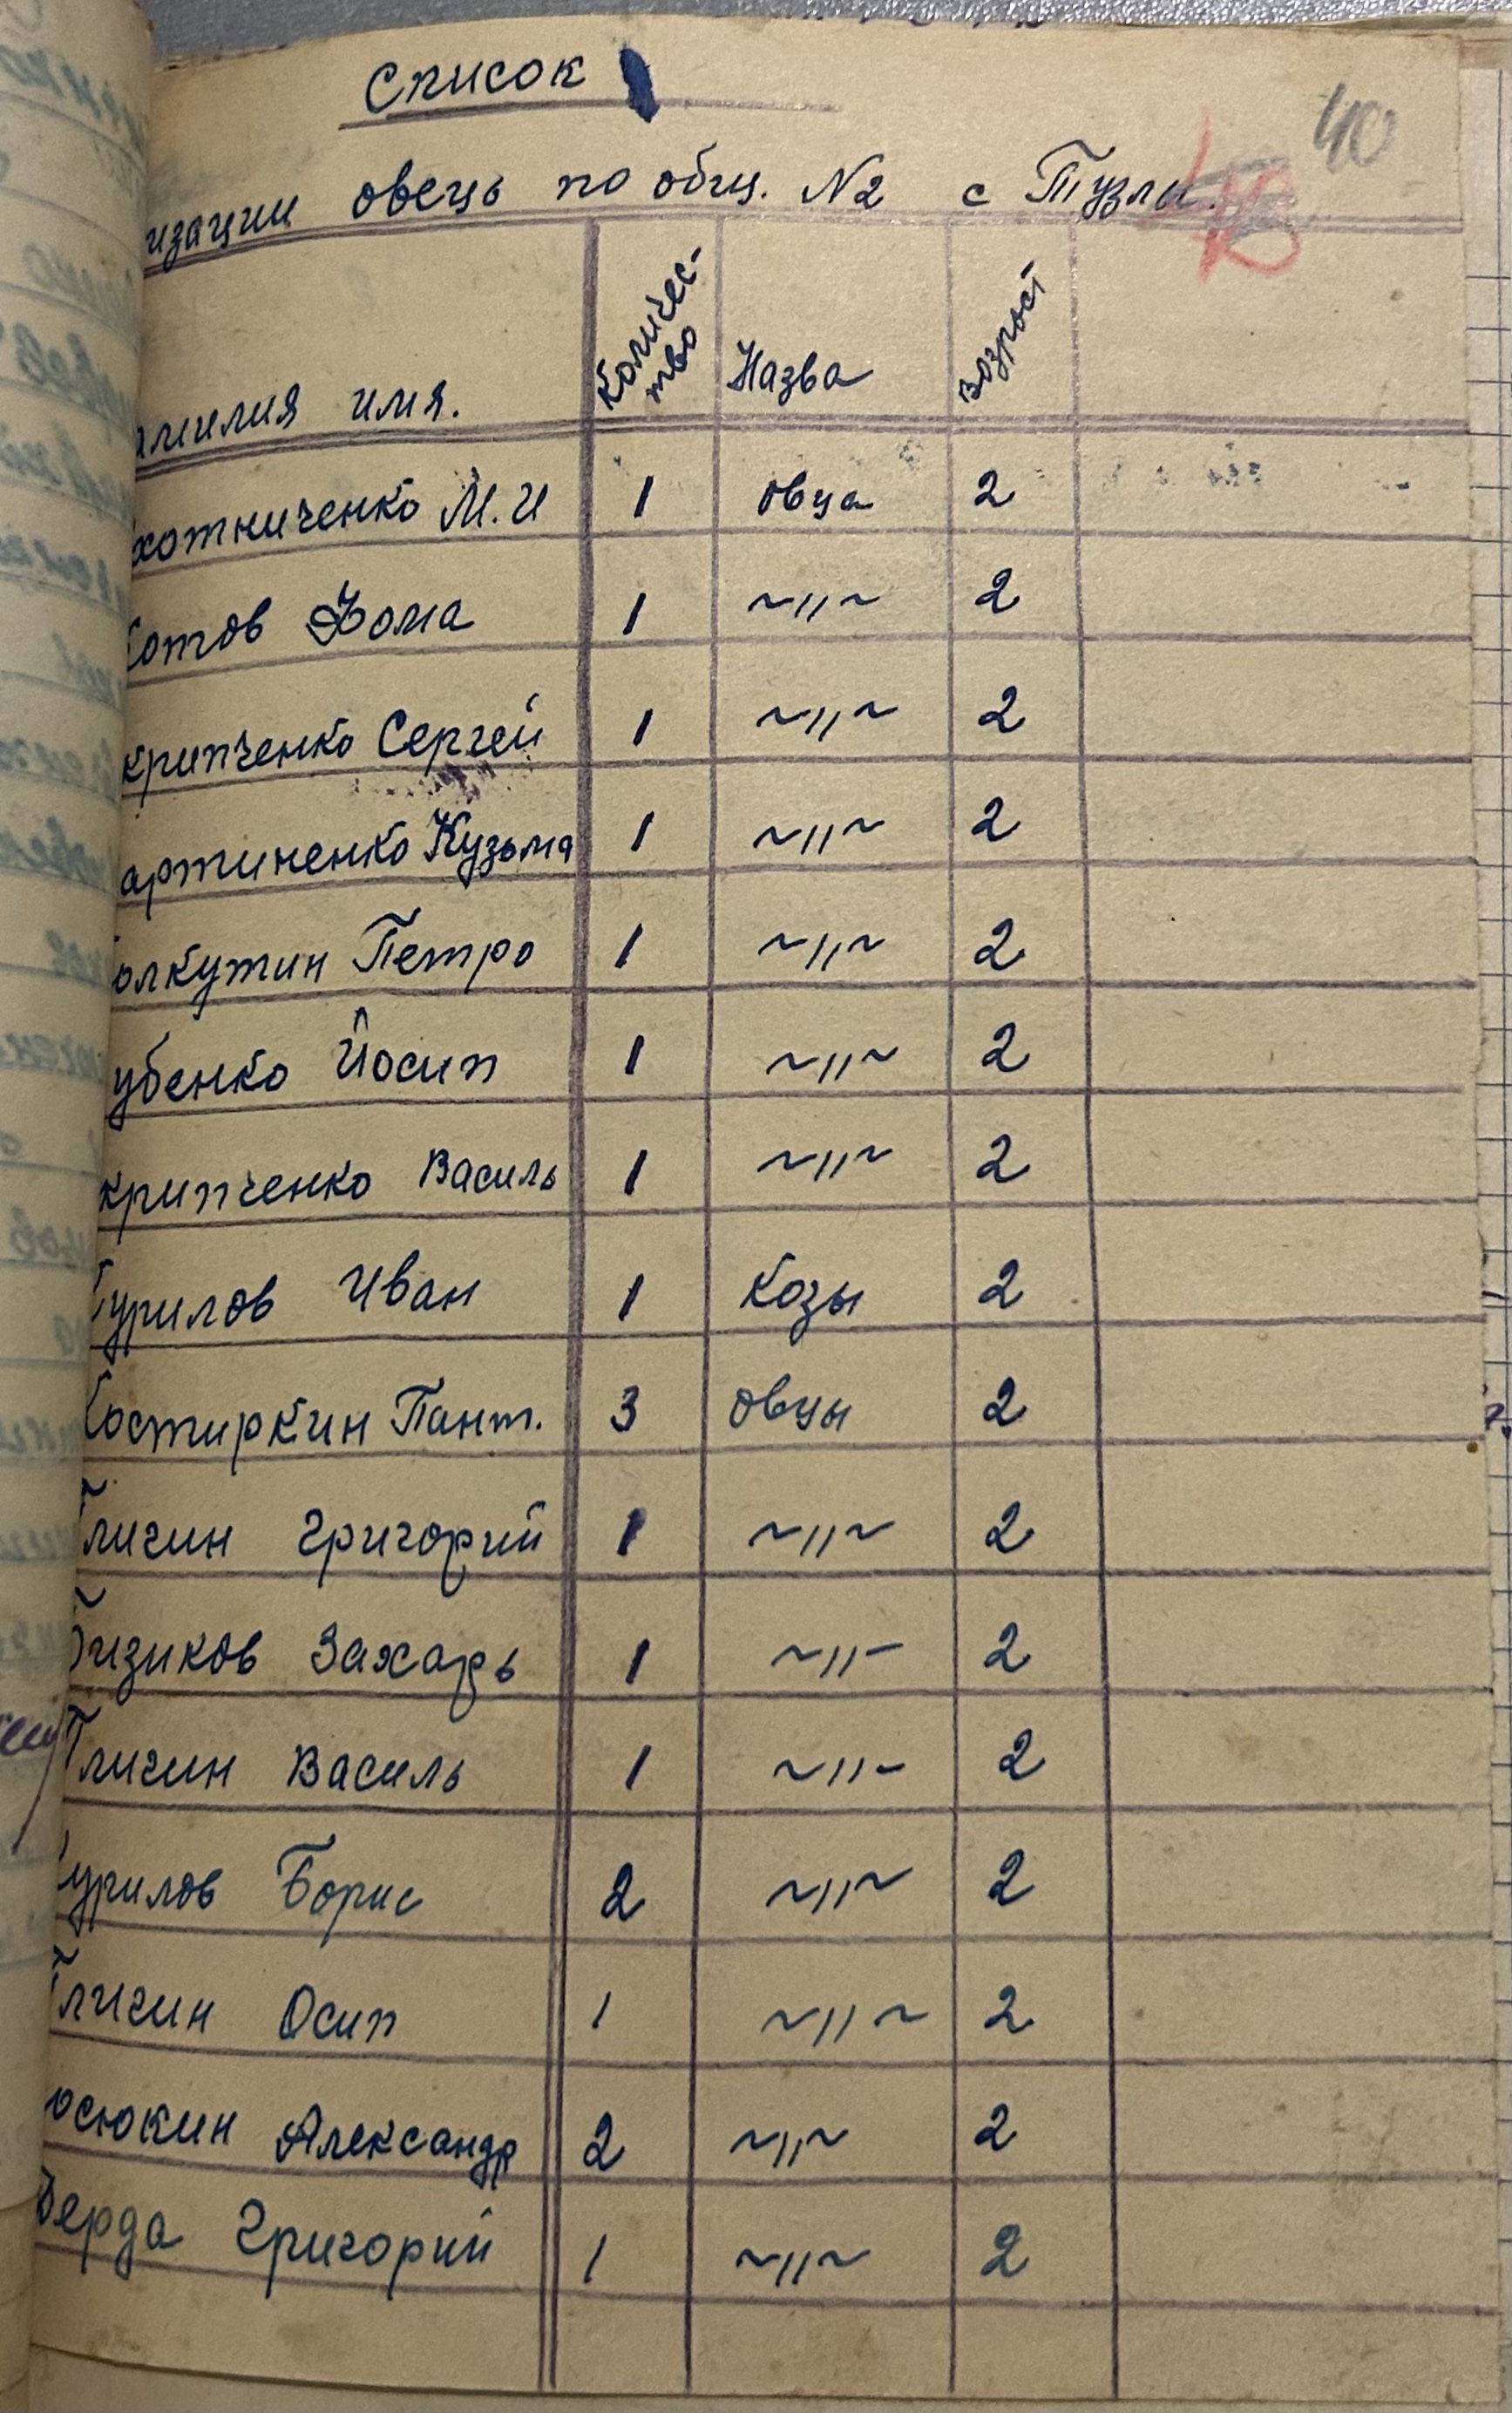 Список
40
изации овець по общ. N2 с Тузлы.
амилия имя. Количес-тво Назва возраст
хотниченко М.И 1 овца 2
Котов Фома 1 ~"~ 2
крипченко Сергей 1 ~"~ 2
артиненко Кузьма 1 ~"~ 2
олкутин Петро 1 ~"~ 2
убенко Йосип 1 ~"~ 2
крипченко Василь 1 ~"~ 2
урилов Иван 1 Козы 2
Костиркин Пант. 3 Овцы 2
Гличин Григорий 1 ~"~ 2
изиков Захарь 1 ~"~ 2
Гличин Василь 1 ~"~ 2
урилов Борис 2 ~"~ 2
Гличин Осип 1 ~"~ 2
осюкин Александр 2 ~"~ 2
Берда Григорий 1 ~"~ 2